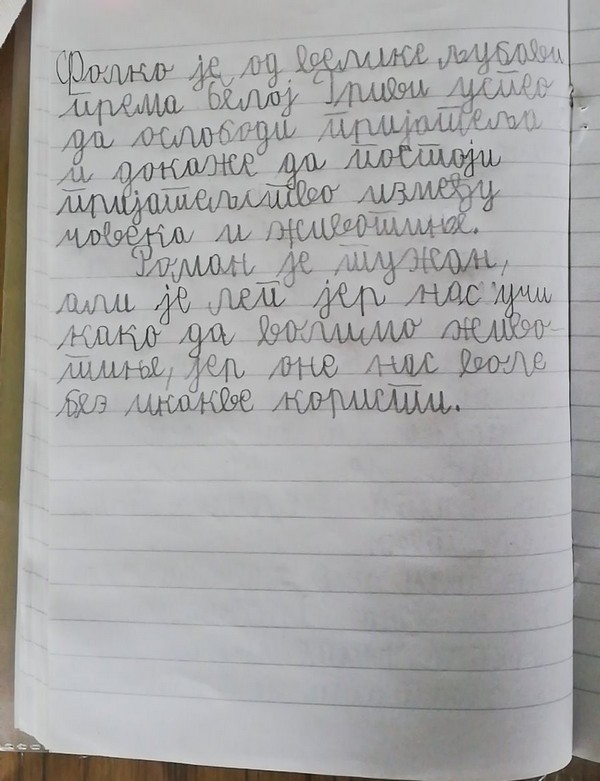 Фолко је од велике љубави
према Белој Гриви успео
да ослободи пријатеља
и докаже да постоји
пријатељство између
човека и животиње.
Роман је тужан,
али је леп јер нас учи
како да волимо живо-
тиње, јер оне нас воле
без икакве користи.